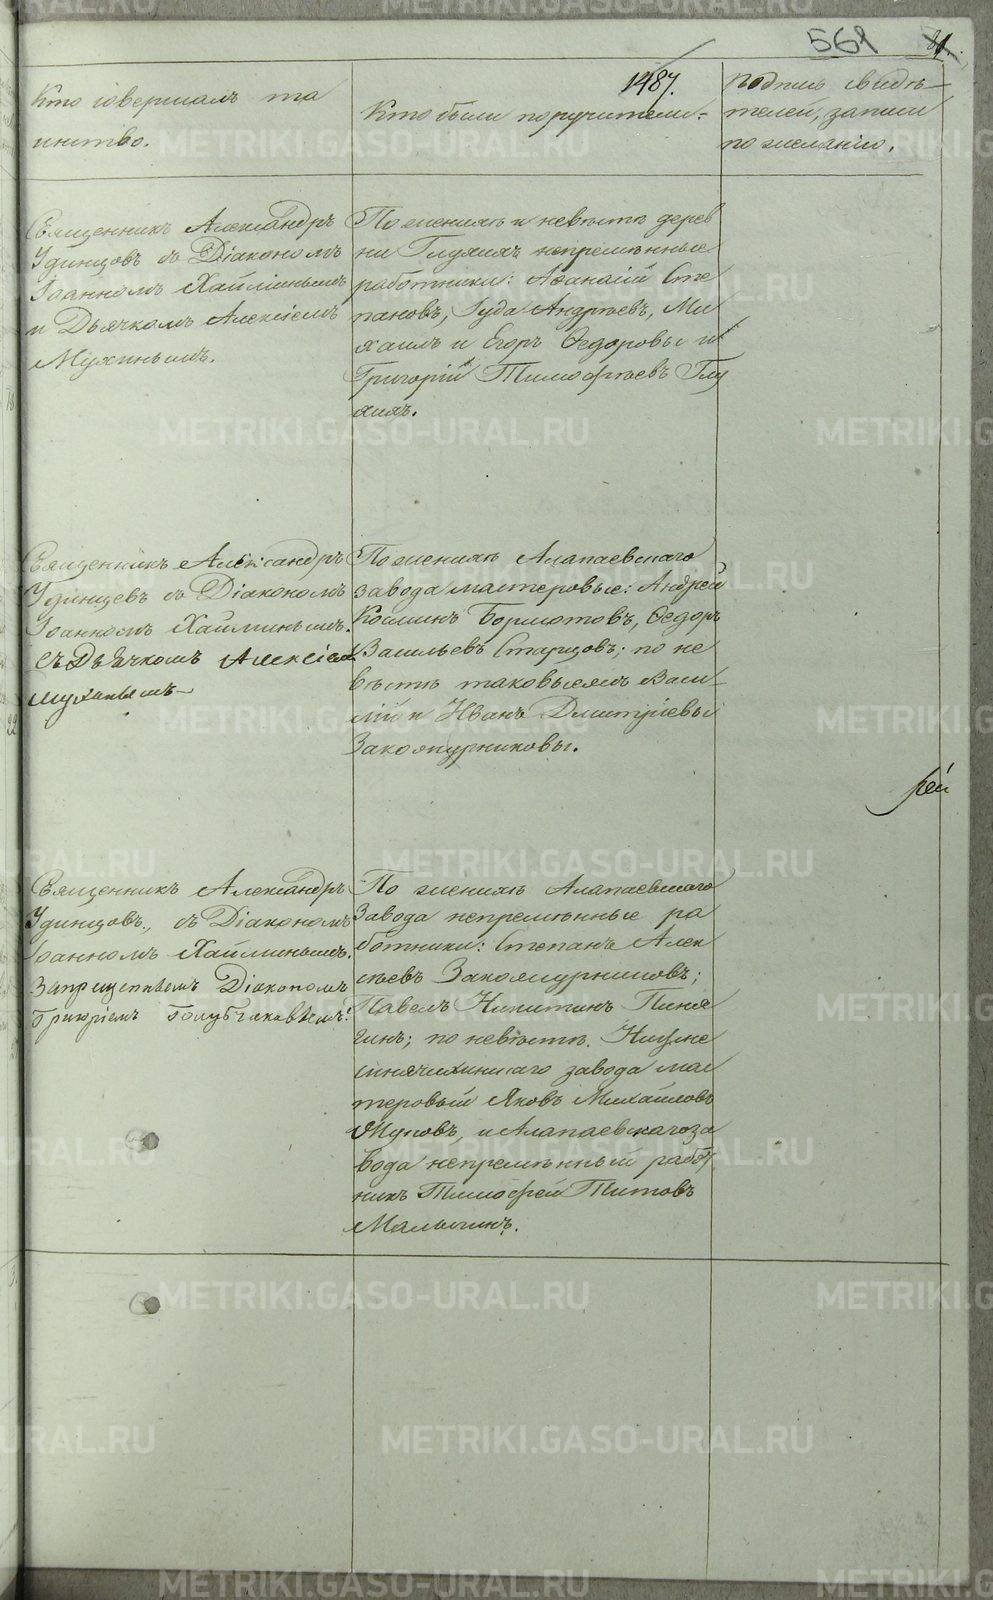 561
1487.
Кто совершалъ та
инство.
Кто были поручители.
Подпись свидѣ
телей, записи
по желанію.
Священникъ Александръ
Удинцовъ съ Діакономъ
Іоанномъ Хайминымъ
и Дьячкомъ Алексіемъ
Мухинымъ.
По женихѣ и невѣстѣ дерев
ни Глухихъ непремѣнные
работники: Аѳанасій Сте
пановъ, Іуда Андреевъ, Ми
хаилъ и Егоръ Ѳедоровы и
Григорій Тимофѣевъ Глу
хихъ.
Священникъ Александръ
Удинцевъ съ Діакономъ
Іоанномъ Хайминымъ.
Съ Дьячкомъ Алексіем
Мухинымъ
По женихѣ Алапаевскаго
завода мастеровые: Андрей
Косминъ Бормотовъ, Ѳедоръ
Васильевъ Старцовъ; по не
вѣстѣ таковыежъ Васи
лій и Иванъ Дмитріевы
Закожурниковы.
рей
Священникъ Александръ
Удинцовъ, съ Діакономъ
Іоанномъ Хайминымъ.
Запрещеннымъ Діакономъ
Григоріемъ Голубчиковымъ.
По женихѣ Алапаевскаго
Завода непремѣнные ра
ботники: Степанъ Алек
сѣевъ Закожурниковъ;
Павелъ Никитинъ Пиня
гинъ; по невѣстѣ. Нижне
синячихинскаго завода мас
теровый Яковъ Михайловъ
Жуковъ, и Алапаевскаго за
вода непремѣнный работ
никъ Тимофей Титовъ
Малыгинъ.
METRIKI.GASO-URAL.RU